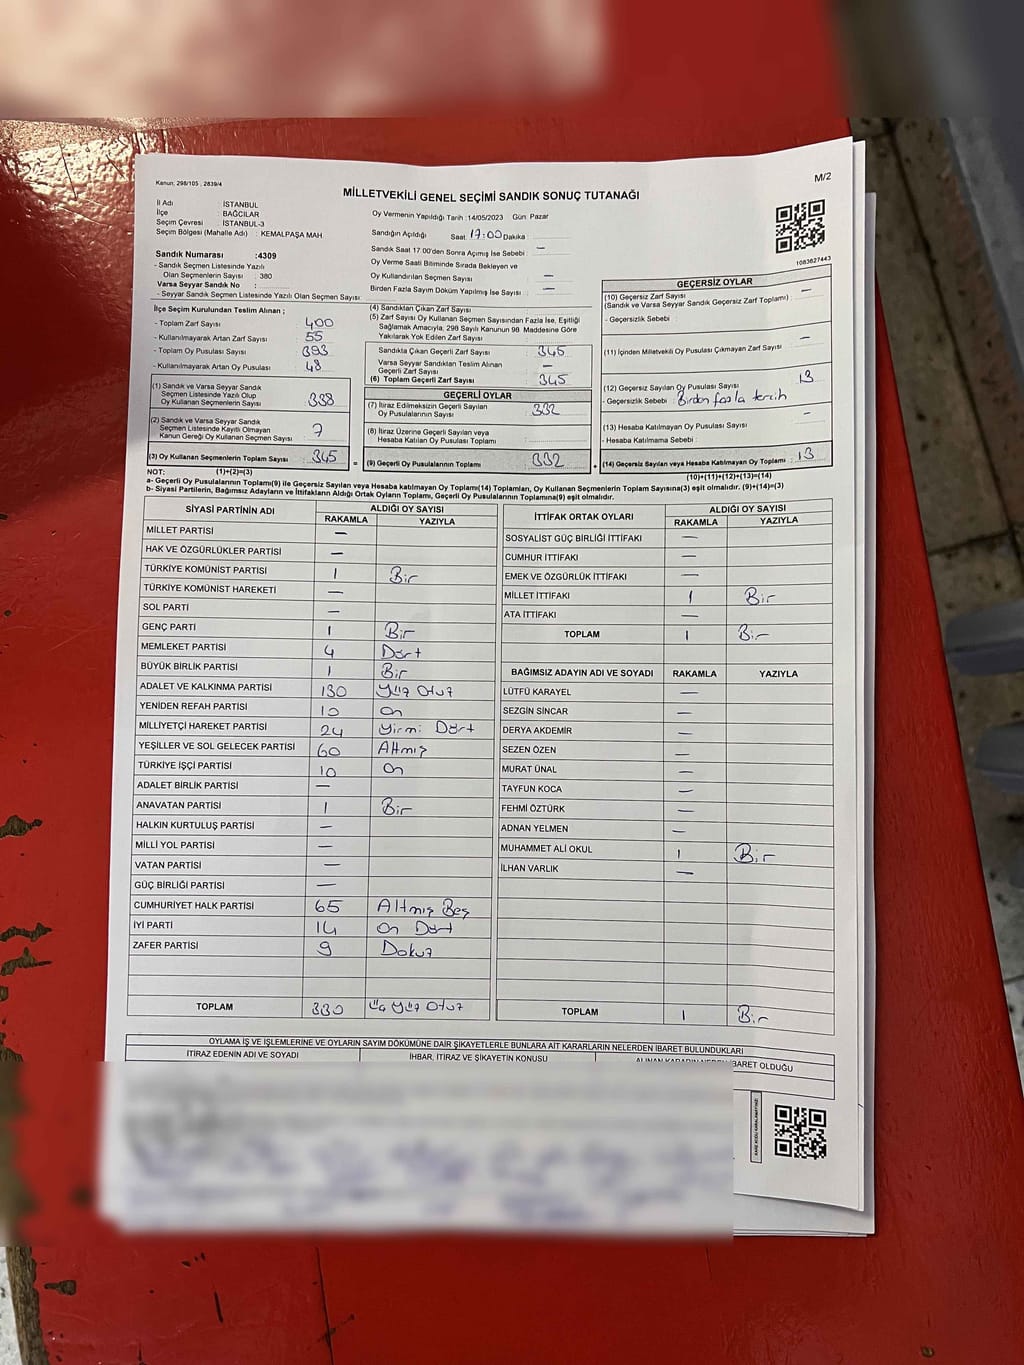 Kanun; 298/105 , 2839/4
M/2
MİLLETVEKİLİ GENEL SEÇİMİ SANDIK SONUÇ TUTANAĞI
İl Adı : İSTANBUL
İlçe : BAĞCILAR
Seçim Çevresi : İSTANBUL-3
Seçim Bölgesi (Mahalle Adı) : KEMALPAŞA MAH
Oy Vermenin Yapıldığı Tarih :14/05/2023 Gün Pazar
Sandığın Açıldığı Saat 17:00 Dakika :
Sandık Saat 17 00'den Sonra Açımış İse Sebebi : —
Oy Verme Saati Bitiminde Sırada Bekleyen ve
Oy Kullandırılan Seçmen Sayısı —
Birden Fazla Sayım Döküm Yapılmış İse Sayısı : —
1083627443
Sandık Numarası :4309
- Sandık Seçmen Listesinde Yazılı
Olan Seçmenlerin Sayısı : 380
Varsa Seyyar Sandık No :
- Seyyar Sandık Seçmen Listesinde Yazılı Olan Seçmen Sayısı:
İlçe Seçim Kurulundan Teslim Alınan ;
- Toplam Zarf Sayısı : 400
- Kullanılmayarak Artan Zarf Sayısı : 55
- Toplam Oy Pusulası Sayısı : 393
- Kullanılmayarak Artan Oy Pusulası : 48
(1) Sandık ve Varsa Seyyar Sandık
Seçmen Listesinde Yazılı Olup
Oy Kullanan Seçmenlerin Sayısı : 338
(2) Sandık ve Varsa Seyyar Sandık
Seçmen Listesinde Kayıtlı Olmayan
Kanun Gereği Oy Kullanan Seçmen Sayısı : 7
(3) Oy Kullanan Seçmenlerin Toplam Sayısı : 345
(4) Sandıktan Çıkan Zarf Sayısı
(5) Zarf Sayısı Oy Kullanan Seçmen Sayısından Fazla İse, Eşitliği
Sağlamak Amacıyla, 298 Sayılı Kanunun 98. Maddesine Göre
Yakılarak Yok Edilen Zarf Sayısı :
Sandıkta Çıkan Geçerli Zarf Sayısı : 345
Varsa Seyyar Sandıktan Teslim Alınan
Geçerli Zarf Sayısı : —
(6) Toplam Geçerli Zarf Sayısı : 345
GEÇERLİ OYLAR
(7) İtiraz Edilmeksizin Geçerli Sayılan
Oy Pusulalarının Sayısı : 332
(8) İtiraz Üzerine Geçerli Sayılan veya
Hesaba Katılan Oy Pusulası Toplamı :
= (9) Geçerli Oy Pusulalarının Toplamı : 332
GEÇERSİZ OYLAR
(10) Geçersiz Zarf Sayısı —
(Sandık ve Varsa Seyyar Sandık Geçersiz Zarf Toplamı) :
- Geçersizlik Sebebi :
(11) İçinden Milletvekili Oy Pusulası Çıkmayan Zarf Sayısı —
(12) Geçersiz Sayılan Oy Pusulası Sayısı : 13
- Geçersizlik Sebebi : Birden fazla tercih
(13) Hesaba Katılmayan Oy Pusulası Sayısı : —
- Hesaba Katılmama Sebebi :
+ (14) Geçersiz Sayılan veya Hesaba Katılmayan Oy Toplamı : 13
NOT: (1)+(2)=(3) (10)+(11)+(12)+(13)=(14)
a- Geçerli Oy Pusulaları Toplamı(9) ile Geçersiz Sayılan veya Hesaba katılmayan Oy Toplamı(14) Toplamları, Oy Kullanan Seçmenlerin Toplam Sayısına(3) eşit olmalıdır. (9)+(14)=(3)
b- Siyasi Partilerin, Bağımsız Adayların ve İttifakların Aldığı Ortak Oyların Toplamı, Geçerli Oy Pusulalarının Toplamına(9) eşit olmalıdır.
SİYASİ PARTİNİN ADI ALDIĞI OY SAYISI
RAKAMLA YAZIYLA
MİLLET PARTİSİ —
HAK VE ÖZGÜRLÜKLER PARTİSİ —
TÜRKİYE KOMÜNİST PARTİSİ 1 Bir
TÜRKİYE KOMÜNİST HAREKETİ —
SOL PARTİ —
GENÇ PARTİ 1 Bir
MEMLEKET PARTİSİ 4 Dört
BÜYÜK BİRLİK PARTİSİ 1 Bir
ADALET VE KALKINMA PARTİSİ 130 Yüz Otuz
YENİDEN REFAH PARTİSİ 10 On
MİLLİYETÇİ HAREKET PARTİSİ 24 Yirmi Dört
YEŞİLLER VE SOL GELECEK PARTİSİ 60 Altmış
TÜRKİYE İŞÇİ PARTİSİ 10 On
ADALET BİRLİK PARTİSİ —
ANAVATAN PARTİSİ 1 Bir
HALKIN KURTULUŞ PARTİSİ —
MİLLİ YOL PARTİSİ —
VATAN PARTİSİ —
GÜÇ BİRLİĞİ PARTİSİ —
CUMHURİYET HALK PARTİSİ 65 Altmış Beş
İYİ PARTİ 14 On Dört
ZAFER PARTİSİ 9 Dokuz
TOPLAM 330 Üç Yüz Otuz
İTTİFAK ORTAK OYLARI ALDIĞI OY SAYISI
RAKAMLA YAZIYLA
SOSYALİST GÜÇ BİRLİĞİ İTTİFAKI —
CUMHUR İTTİFAKI —
EMEK VE ÖZGÜRLÜK İTTİFAKI —
MİLLET İTTİFAKI 1 Bir
ATA İTTİFAKI —
TOPLAM 1 Bir
BAĞIMSIZ ADAYIN ADI VE SOYADI RAKAMLA YAZIYLA
LÜTFÜ KARAYEL —
SEZGİN SİNCAR —
DERYA AKDEMİR —
SEZEN ÖZEN —
MURAT ÜNAL —
TAYFUN KOCA —
FEHMİ ÖZTÜRK —
ADNAN YELMEN —
MUHAMMET ALİ OKUL 1 Bir
İLHAN VARLIK —
TOPLAM 1 Bir
OYLAMA İŞ VE İŞLEMLERİNE VE OYLARIN SAYIM DÖKÜMÜNE DAİR ŞİKAYETLERLE BUNLARA AİT KARARLARIN NELERDEN İBARET BULUNDUKLARI
İTİRAZ EDENİN ADI VE SOYADI İHBAR, İTİRAZ VE ŞİKAYETİN KONUSU ALINAN KARARIN NEDEN İBARET OLDUĞU